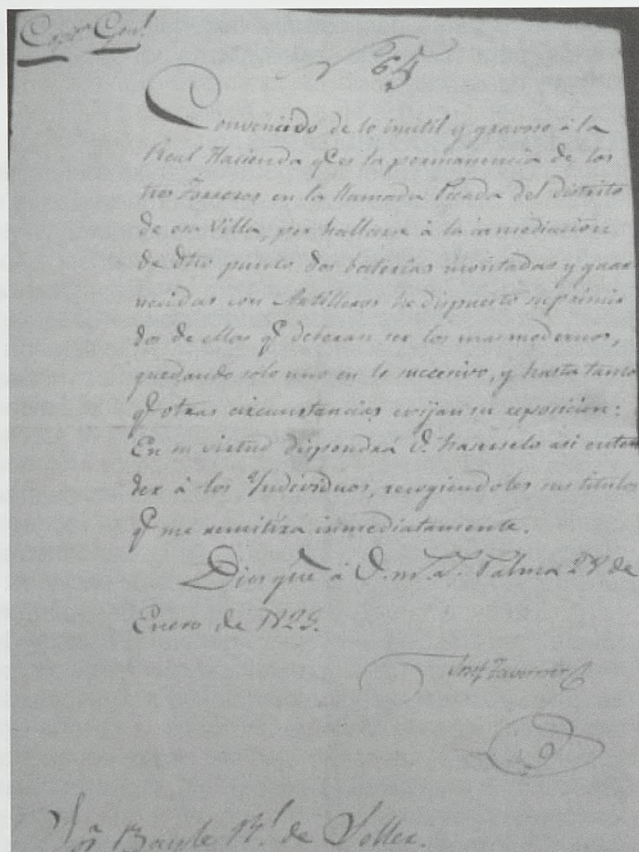 Capn. Genl.
Nº 65
Convencido de lo inutil y gravoso à la
Real Hacienda qe. es la permanencia de los
tres Torreros en la llamada Picada del distrito
de esa Villa, por hallarse à la inmediacion
de dho punto dos baterias montadas y guar
necidas con Artilleros he dispuesto suprimir
dos de ellos qe. deberan ser los mas modernos,
quedando solo uno en lo succesivo, y hasta tanto
qe. otras circunstancias exijan su reposicion:
En su virtud dispondrá V. haserselo asi enten
der á los Yndividuos, recogiendoles sus titulos
qe. me remitira inmediatamente.
Dios gue. á V. ms. as. Palma 28 de
Enero de
Josef Taverner
Sor. Bayle Rl. de Soller.